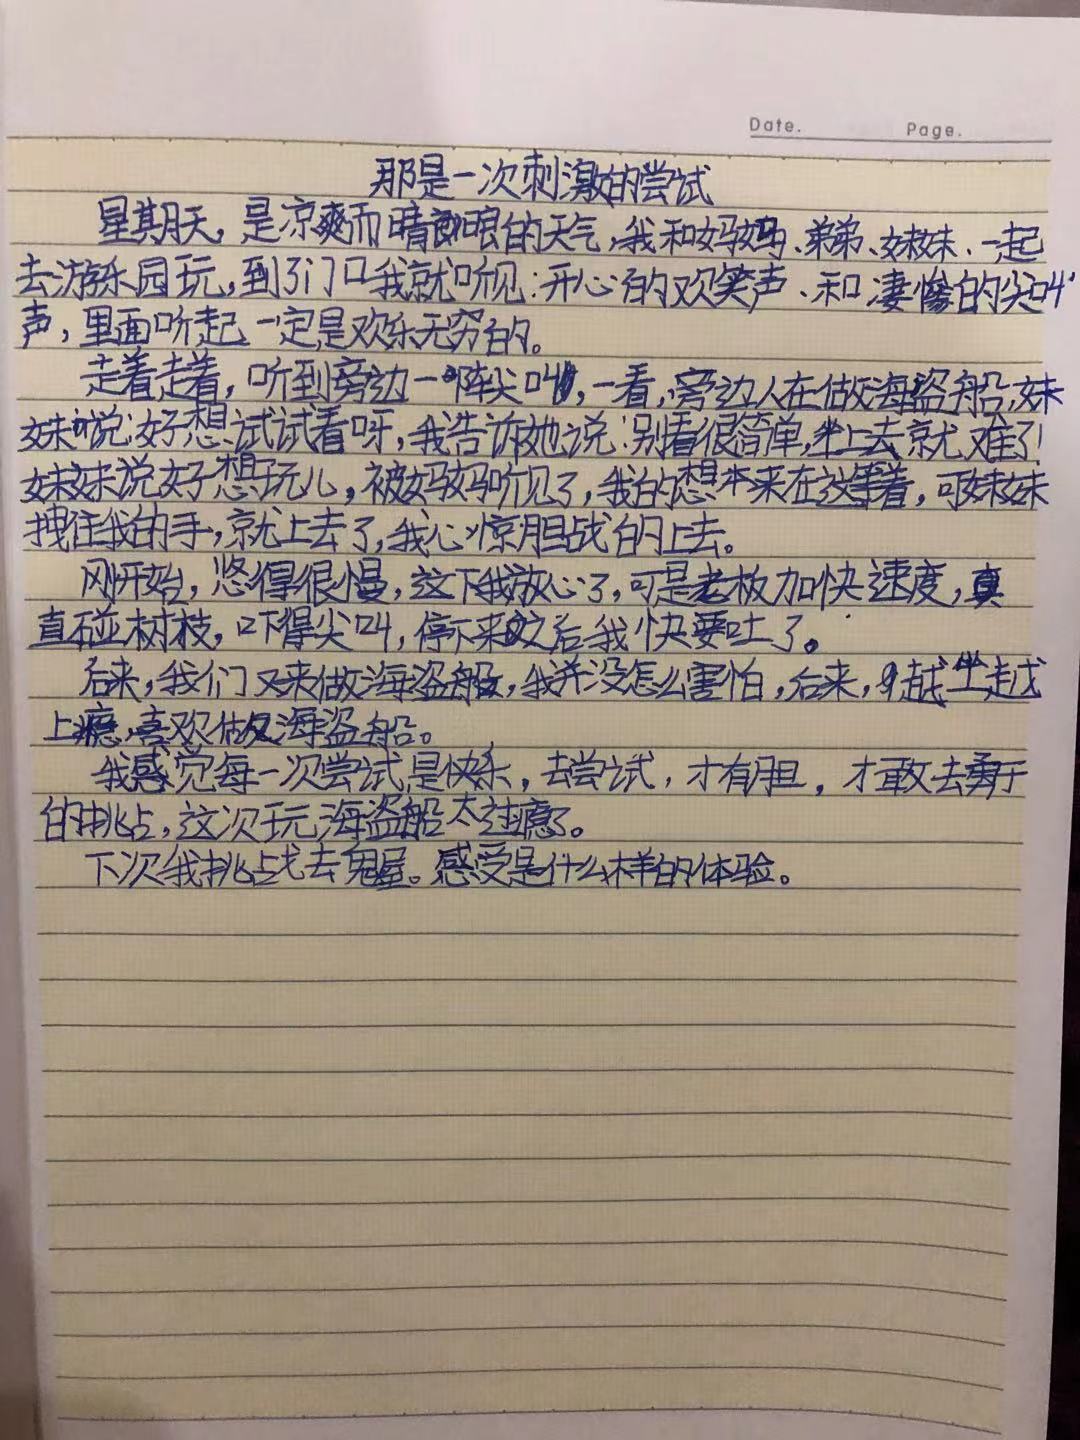 Date.
Page.
那是一次刺激的尝试
星期天，是凉爽而晴朗的天气，我和妈妈、弟弟、妹妹、一起
去游乐园玩，到了门口我就听见：开心的欢笑声、和凄惨的尖叫
声，里面听起一定是欢乐无穷的。
走着走着，听到旁边一阵尖叫，一看，旁边人在做海盗船，妹
妹说：好想试试看呀，我告诉她说：别看很简单，坐上去就难了！
妹妹说好想玩儿，被妈妈听见了，我的想本来在这等着，可妹妹
拽住我的手，就上去了，我心惊胆战的上去。
刚开始，悠得很慢，这下我放心了，可是老板加快速度，真
直碰树枝，吓得尖叫，停下来之后我快要吐了。
后来，我们又来做海盗船，我并没怎么害怕，后来，越坐越
上瘾，喜欢做海盗船。
我感觉每一次尝试是快乐，去尝试，才有胆，才敢去勇于
的挑战，这次玩海盗船太过瘾了。
下次我挑战去鬼屋。感受是什么样的体验。